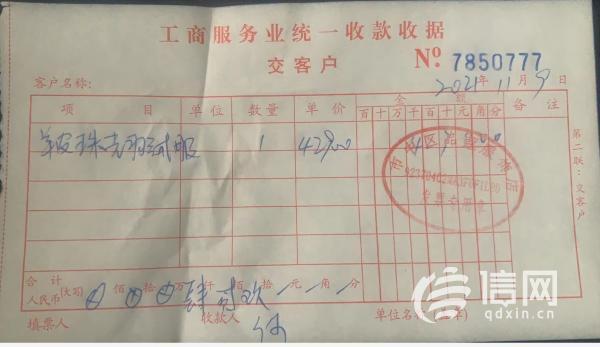 工商服务业统一收款收据
交客户
№ 7850777
客户名称: 2021年11月9日
项目 单位 数量 单价 金额 备注
百十万千百十元角分
1 4290
第二联：交客户
合计
人民币(大写) 佰 拾 万肆仟贰佰玖拾 元 角 分
填票人 收款人 单位名称(盖章)
发票专用章
信网
qdxin.cn